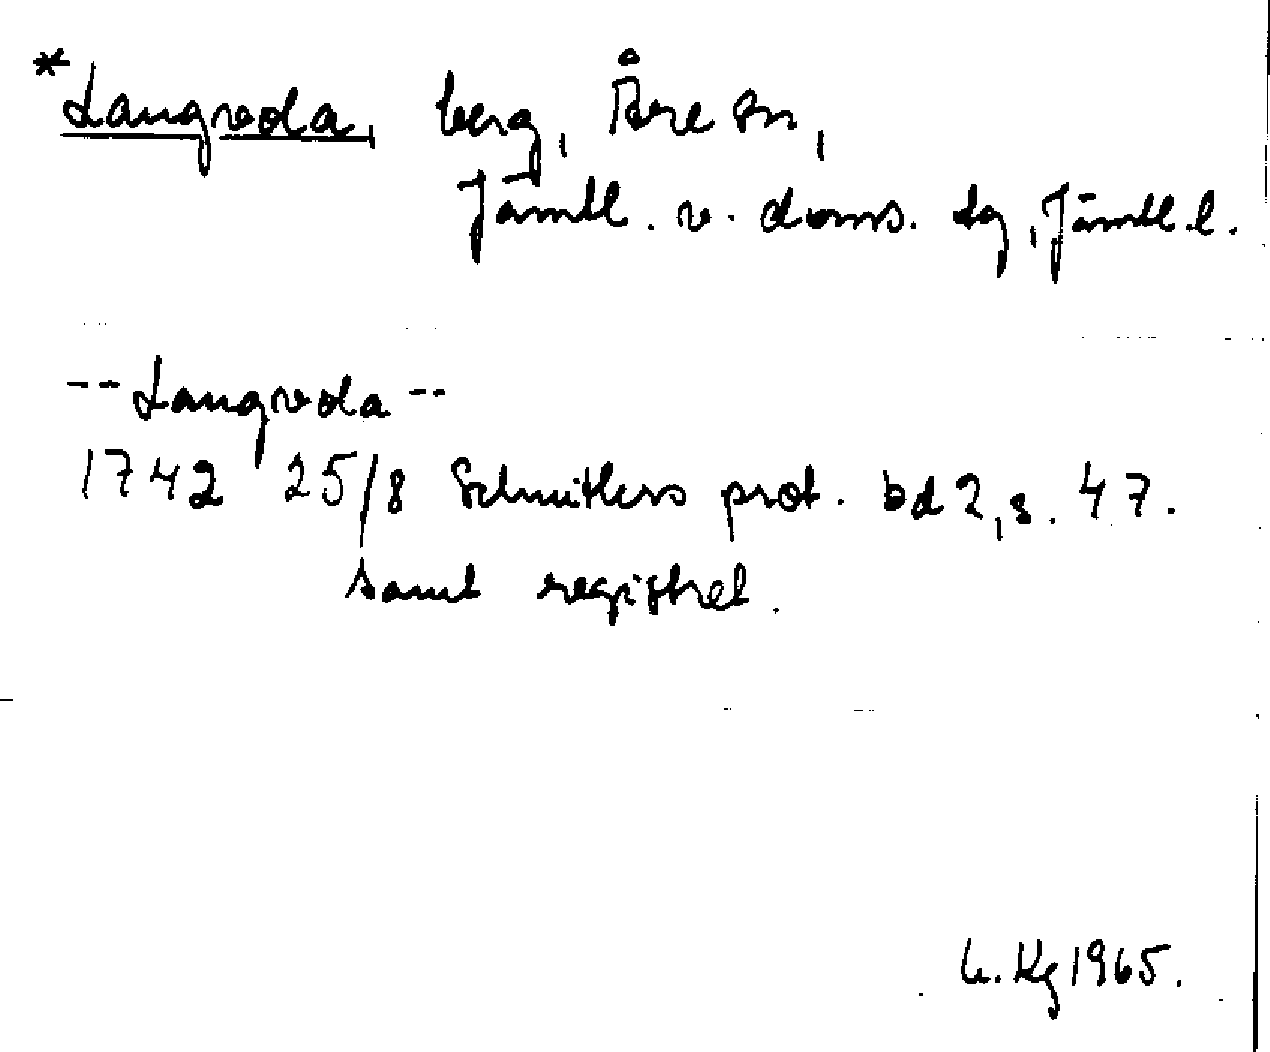 *Langvola, berg, Åre sn,
Jämtl. v. doms. tg, Jämtl. l.
-- Langvola --
1742 25/8 Schnitlers prot. bd 2, s. 47.
samt registret.
Kg 1965.